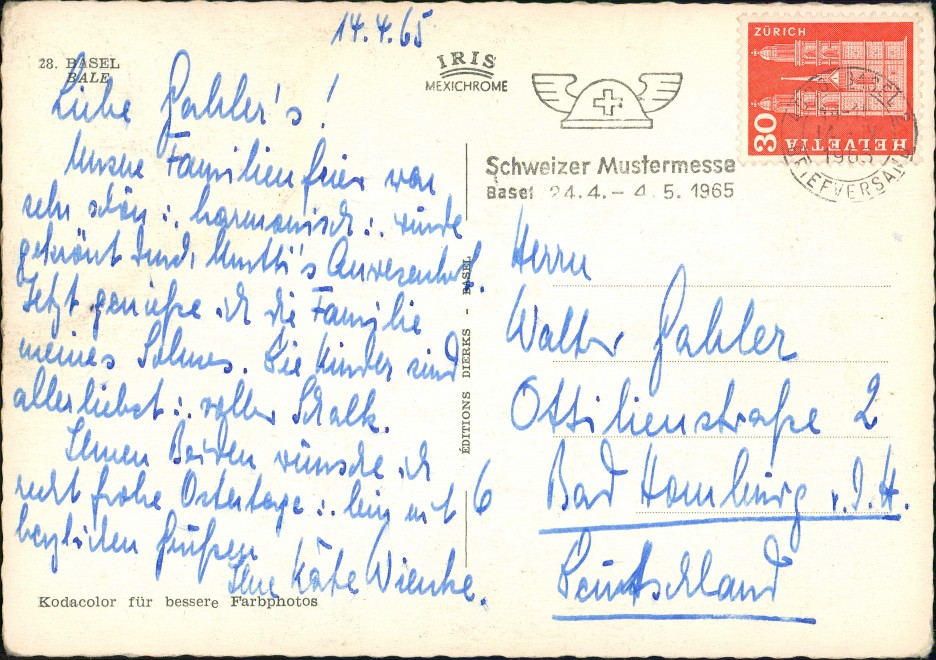 14.4.65
28. BASEL
BALE
IRIS
MEXICHROME
Liebe Gahler's!
Unsere Familienfeier war
sehr schön u. harmonisch u. wurde
gekrönt durch Mutti's Anwesenheit.
Jetzt genieße ich die Familie
meines Sohnes. Die Kinder sind
allerliebst u. voller Schalk.
Ihnen Beiden wünsche ich
recht frohe Ostertage u. bin mit
herzlichen Grüßen
Ihre Käte Wienke.
Kodacolor für bessere Farbphotos
ÉDITIONS DIERKS - BASEL
Schweizer Mustermesse
Basel 24.4. – 4.5. 1965
ZÜRICH
30
HELVETIA
BASEL
1965
BRIEFVERSAND
Herrn
Walter Gahler
Ottilienstraße 2
6 Bad Homburg v.d.H.
Deutschland